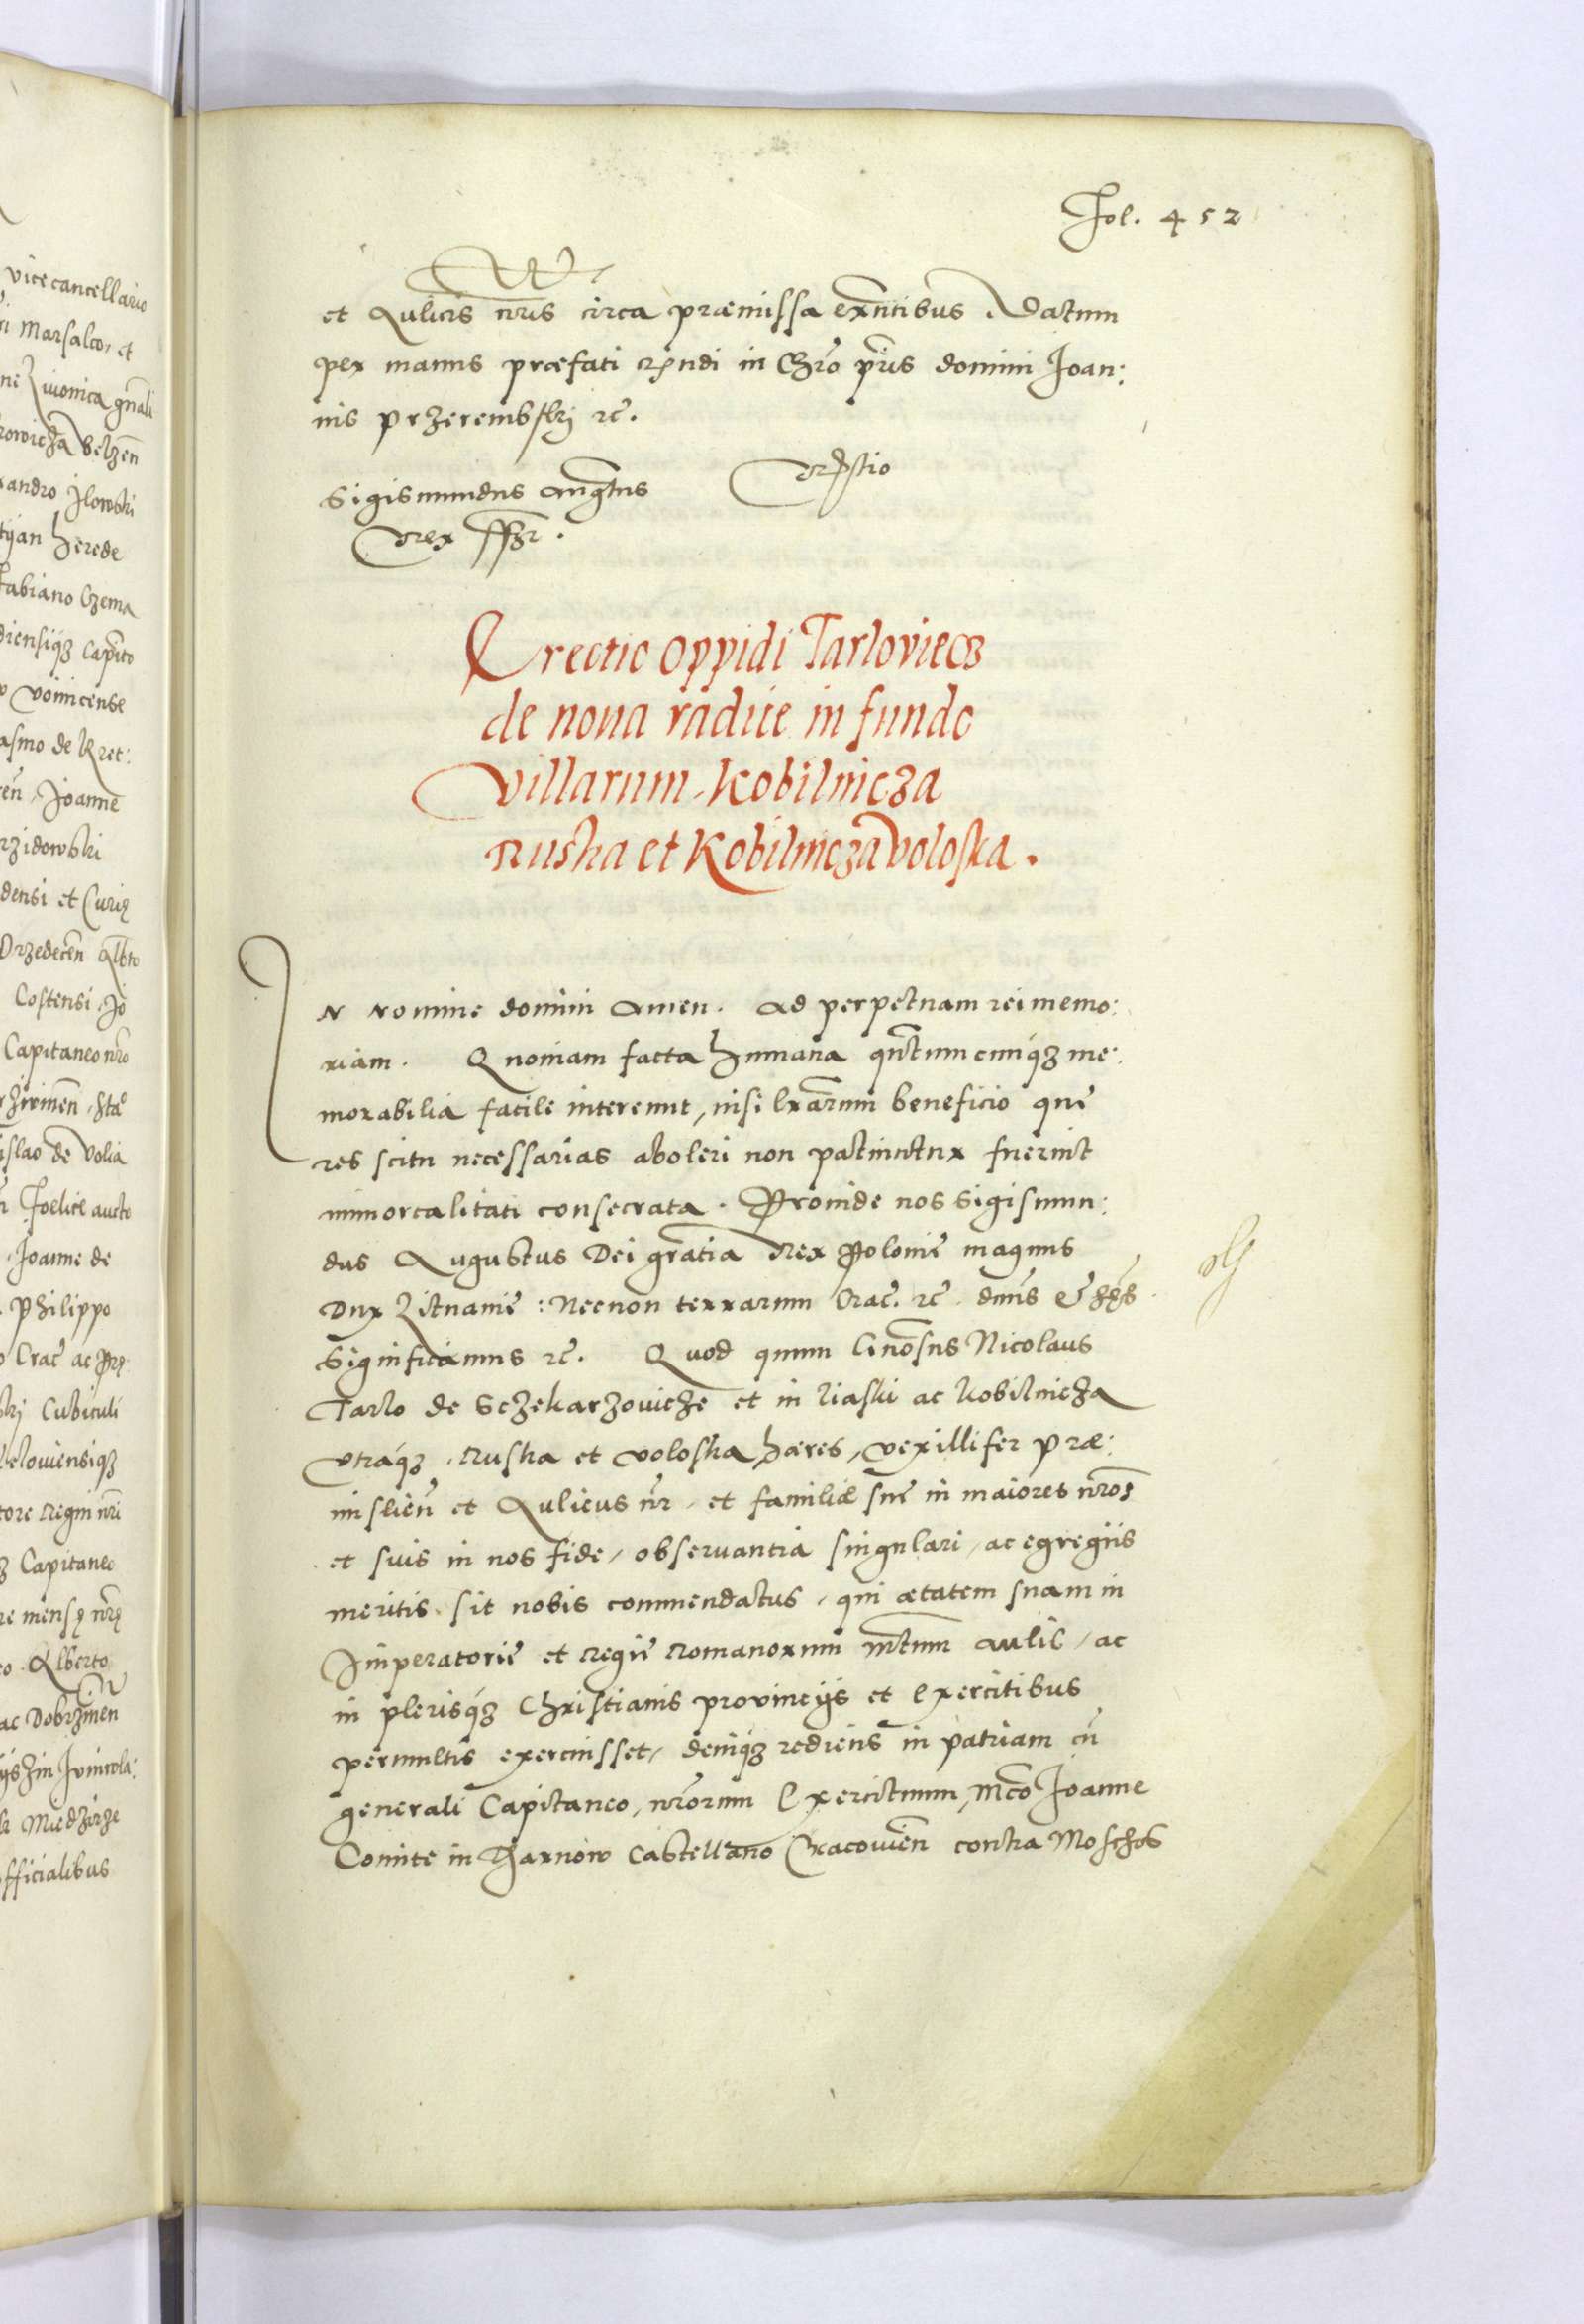 vicecancellario
Marsalco, et
Livonica gnali
belzen
andro Ilowski
herede
Fabiano Czema
diensiqz Capito
voinicense
asmo de Kret:
Joanne
rzidowski
densi et Curię
Drzedecen Albto
Costensi, Jo
Capitaneo nro
islao de Volia
Foelice aucto
Joanne de
Philippo
Crac ac Prę:
Cubiculi
tore Regni nri
Capitaneo
mensę nrę
Alberto
ac Dobrzinen
Miedzirze
officialibus
Fol. 452
et Aulicis nris circa præmissa exntibus. Datum
per manus præfati Rndi in Chro pris domini Joan:
nis Przerembskj rc.
Sigismundus Augtus Rlstio
Rex sszr.
Erectio oppidi Tarloviecz
de noua radice in fundo
villarum, Kobilnicza
Ruska et Kobilnicza Voloska.
IN Nomine domini Amen. Ad perpetuam rei memo:
riam. Quoniam facta humana qntumcumqz me:
morabilia facile intereunt, nisi lrarum beneficio que
res scitu necessarias aboleri non patiuntur fuerint
immortalitati consecrata. Proinde nos Sigismun:
dus Augustus Dei gratia Rex Polonie magnus
Dux Lituanie: Necnon terrarum Crac. rc. dnus et hęs.
Significamus rc. Quod quum Gnosus Nicolaus
Tarlo de Sczekarzovicze et in Liaski ac Kobilnicza
vtraqz. Ruska et voloska hæres, vexillifer Præ:
mislien et Aulicus nr, et familiæ sue in maiores nros
et suis in nos fide, obseruantia singulari, ac egregiis
meritis sit nobis commendatus, qui ætatem suam in
Imperatorie et regie Romanorum mtum aulis, ac
in plerisqz Christianis provincijs et exercitibus
permultis exercuisset, deniqz rediens in patriam cu
generali Capitaneo, nrorum Exercituum, Mco Joanne
Comite in Tharnow Castellano Cracovien contra Moschos